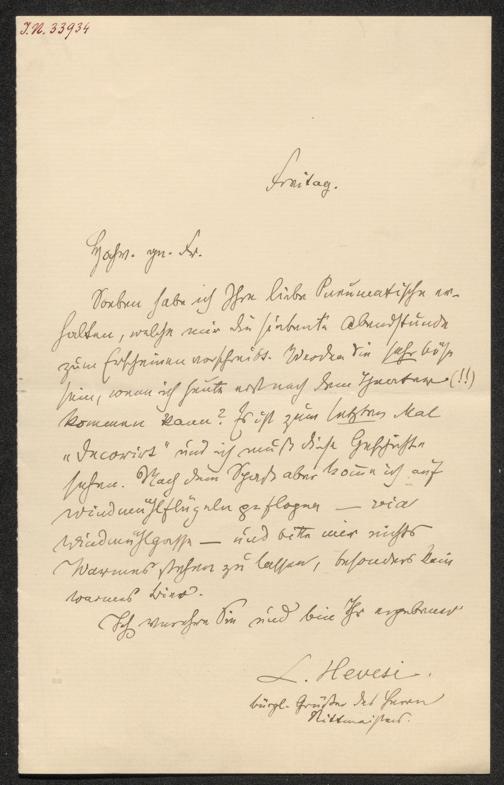 I.N. 33934
Freitag.
Hochv. gn. Fr.
Soeben habe ich Ihre liebe Pneumatische er-
halten, welche mir die siebente Abendstunde
zum Erscheinen vorschreibt. Werden Sie sehr böse
sein, wenn ich heute erst nach dem Theater (!!)
kommen kann? Es ist zum letzten Mal
„Decorirt" und ich muß diese Geschichte
sehen. Nach dem Spaß aber komme ich auf
Windmühlflügeln geflogen — via
Windmühlgasse — und bitte mir nichts
Warmes stehen zu lassen, besonders kein
warmes Bier.
Ich verehre Sie und bin Ihr ergebener
L. Hevesi.
bürgl. Grüße des Herrn
Rittmeisters.